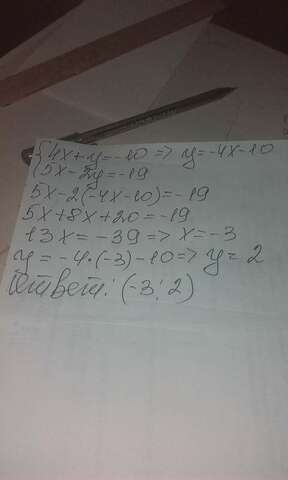 {4x+y=-10 => y=-4x-10
5x-2y=-19
5x-2(-4x-10)=-19
5x+8x+20=-19
13x=-39 => x=-3
y=-4·(-3)-10 => y=2
Ответ: (-3; 2)